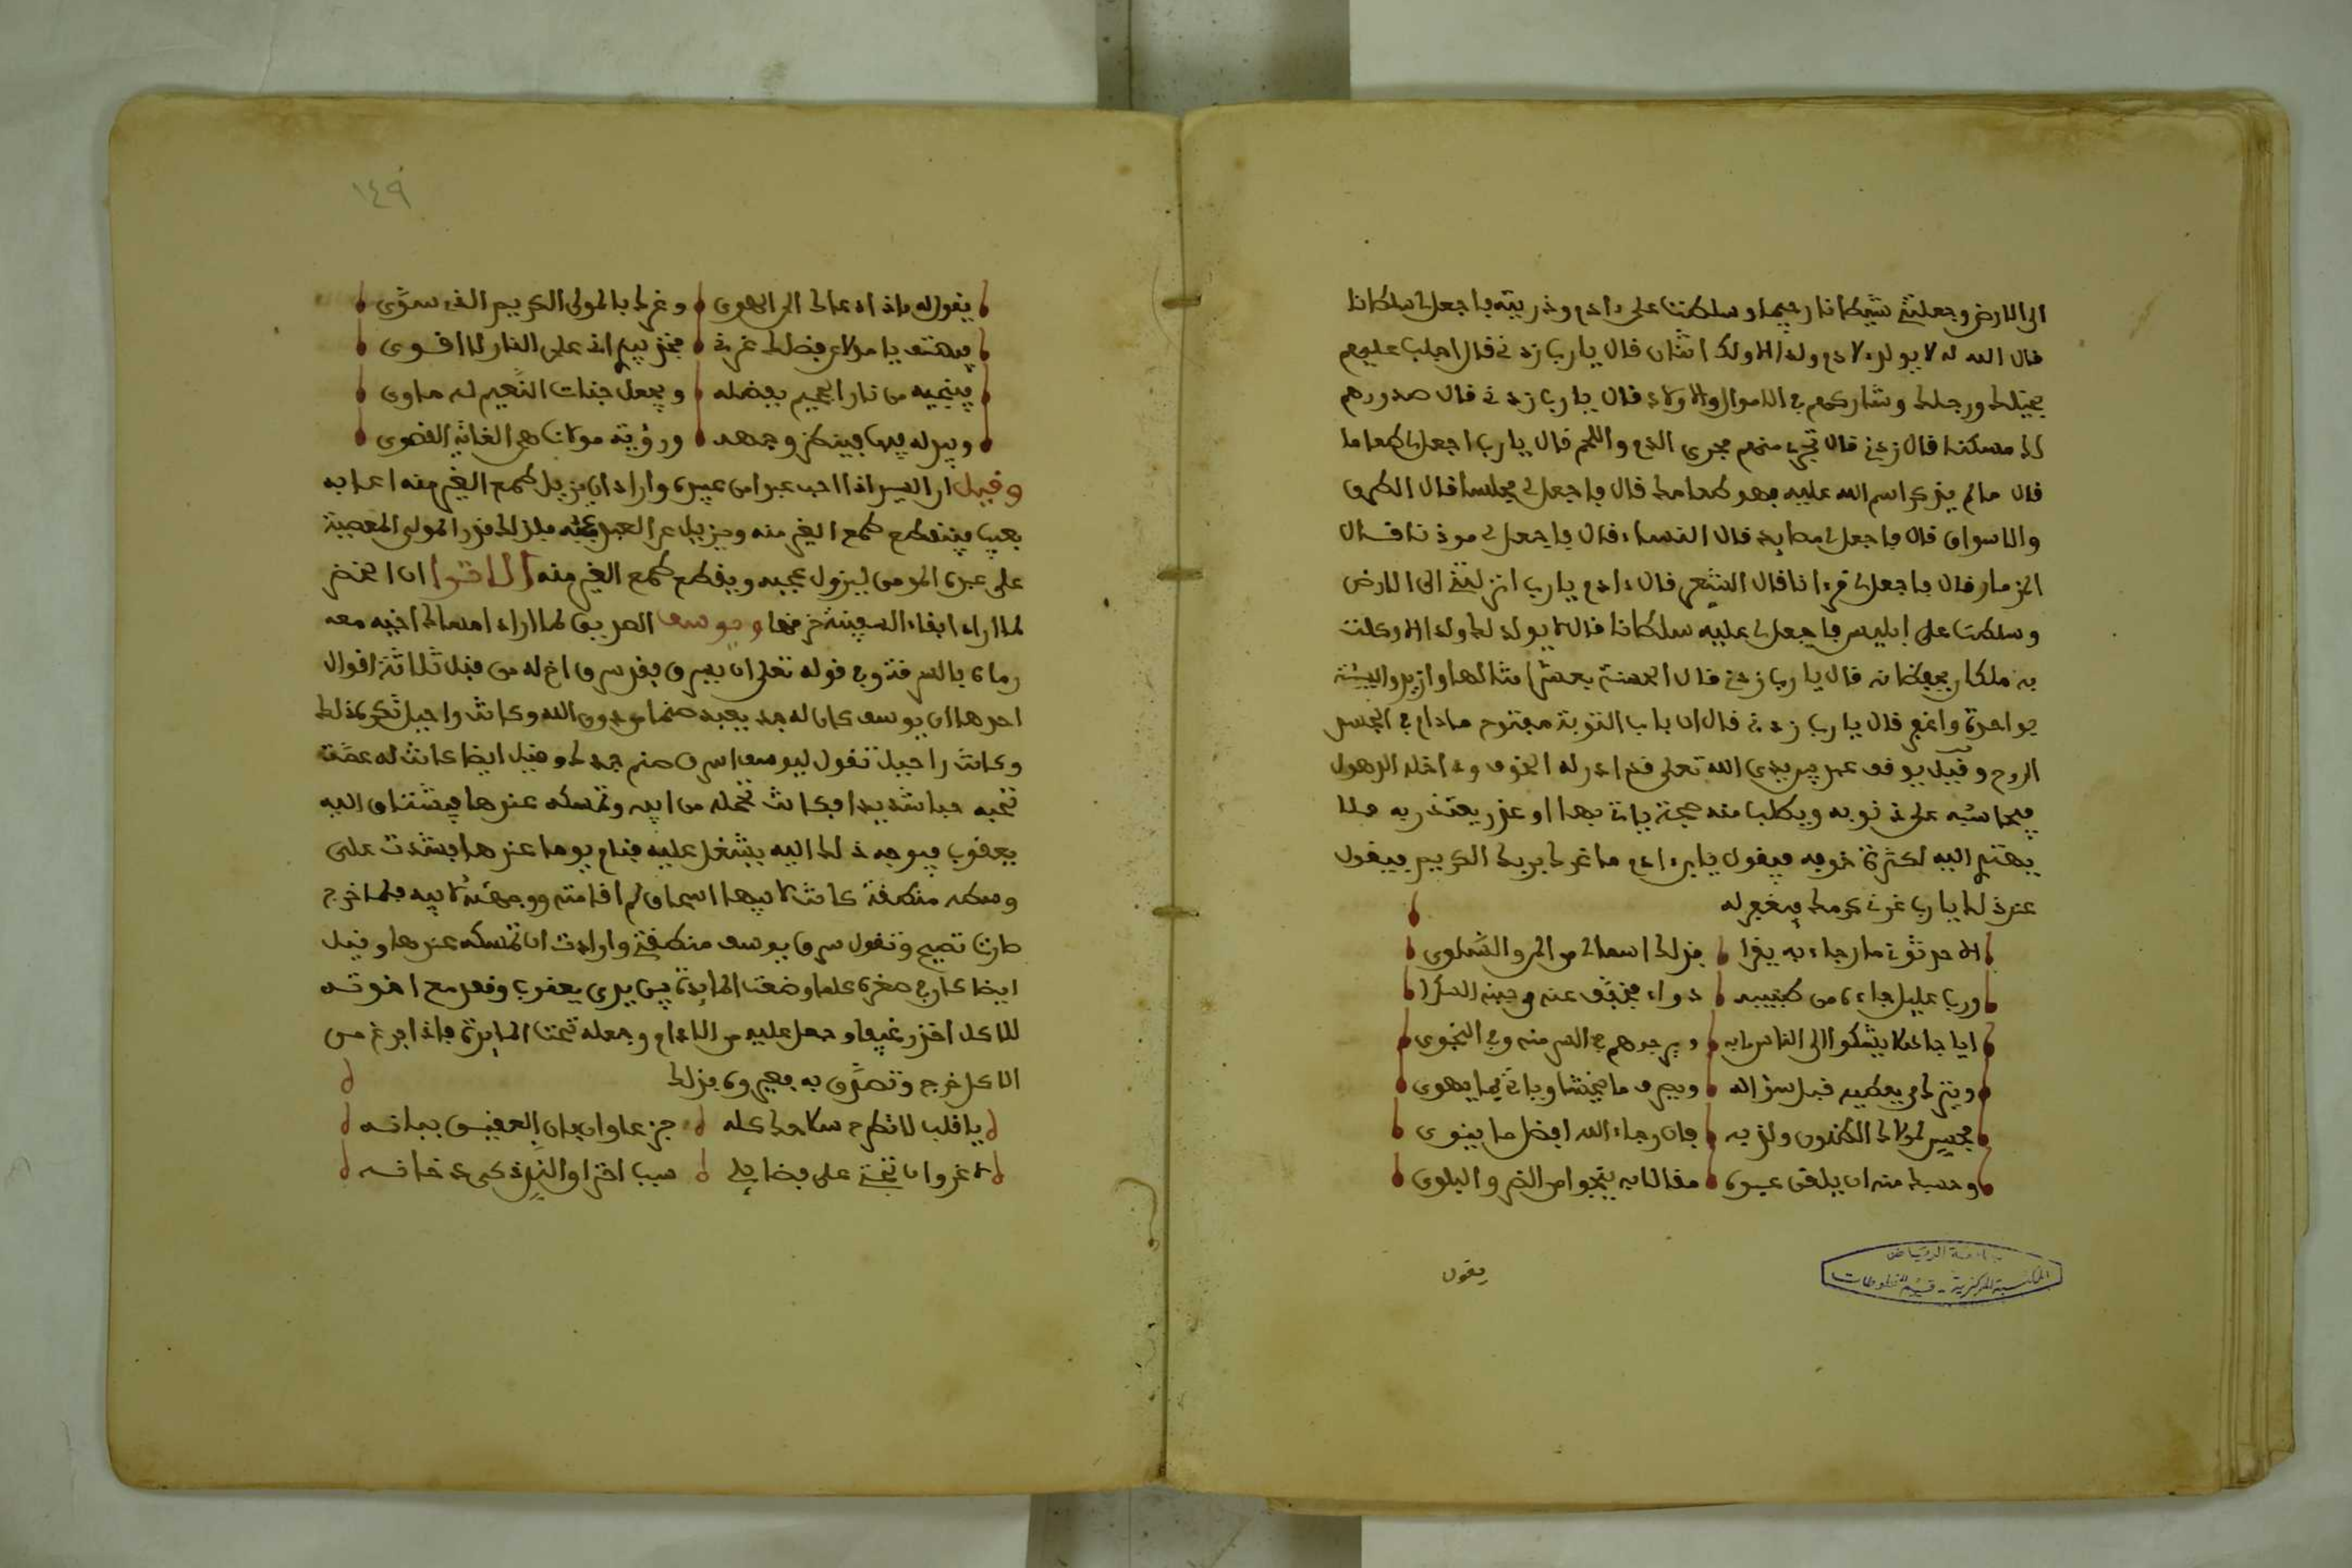 الى الارض وجعلتني شيطانا رجيما وسلطتني على ءادم وذريته فاجعل لي سلطانا
قال الله له لا يولد لادم ولد الا ولك اثنان قال يا رب زدني قال اجلب عليهم
بخيلك ورجلك وشاركهم في الاموال والاولاد قال يا رب زدني قال صدورهم
لك مسكنا قال زدني قال تجري منهم مجرى الدم واللحم قال يا رب اجعل لي طعاما
قال ما لم يذكر اسم الله عليه فهو طعامك قال فاجعل لي مجلسا قال الطرق
والاسواق قال فاجعل لي مصايد قال النساء قال فاجعل لي موذنا قال
المزمار قال فاجعل لي قرءانا قال الشعر قال ءادم يا رب انزلتني الى الارض
وسلطت علي ابليس فاجعل لي عليه سلطانا قال لا يولد لك ولد الا وكلت
به ملكان يحفظانه قال يا رب زدني قال الحسنة بعشر امثالها وازيد والسيئة
بواحدة واغفر قال يا رب زدني قال ان باب التوبة مفتوح ما دام في الجسد
الروح وقيل يوقف عبد بين يدي الله تعلى قد ادركه الخوف و اخذه الذهول
فيحاسبه على ذنوبه ويطلب منه حجة ياتي بها او عذر يعتذر به فلا
يهتدي اليه لكثرة خوفه فيقول يا ابن ءادم ما غرك بربك الكريم فيقول
عند ذلك يا رب غرني كرمك فيغفر له
الا حدثوني ما رجاء به يقرا بذلك اسمالي من المر والشكوى
ورب عليل جاءه من طبيبه دواء فخفف عنه حينه
ايا جاعلا يشكو الى الناس ما به ويرجوهم في السر منه وفي النجوى
ويترك من يعطيه قبل سؤاله ويصرف ما يخشى وياتي بما يهوى
فحسن لمولاك الظنون ولذ به فان رجاء الله افضل ما ينوى
وحسبك منه ان يلقن عبده مقالا به ينجو من الضر والبلوى
يقول
جامعة الرياض
المكتبة المركزية - قسم المخطوطات
١٤٩
يقول له ماذا دعاك الى الهوى وغرك بالمولى الكريم الذي سوى
فيهتف يا مولاي فضلك غرني فخذ بيدي اني على النار لا اقوى
فينجيه من نار الجحيم بفضله ويجعل جنات النعيم له ماوى
ويبدله فيها فينظر وجهه ورؤية مولانا هي الغاية القصوى
وقيل ان السيد اذا احب عبدا من عبيده واراد ان يزيل طمع الغير منه اعابه
بعيب فينقطع طمع الغير منه ويزيل عن العبد عجبه فلذلك قدر المولى المعصية
على عبده المومن ليزول عجبه ويقطع طمع الغير منه الا ترا ان الخضر
لما اراد ابقاء السفينة خرقها ويوسف الصديق لما اراد امساك اخيه معه
رماه بالسرقة وفي قوله تعلى ان يسرق فقد سرق اخ له من قبل ثلاثة اقوال
احدها ان يوسف كان له جد يعبد صنما من دون الله وكانت راحيل تكره ذلك
وكانت راحيل تقول ليوسف اسرق صنم جدك وقيل ايضا كانت له عمة
تحبه حبا شديدا فكانت تحمله من ابيه وتمسكه عندها فيشتاق اليه
يعقوب فيوجه ذلك اليه يشغل عليه فنام يوما عندها فشدت على
وسطه منطقة كانت لابيها اسحاق ثم اقامته ووجهته لابيه فلما خرج
صارت تصيح وتقول سرق يوسف منطقتي وارادت ان تمسكه عندها وقيل
ايضا كان في صغره كلما وضعت المايدة بين يدي يعقوب وقعد مع اخوته
للاكل اخذ رغيفا وجعل عليه من الادام وجعله تحت المايدة فاذا فرغ من
الاكل خرج وتصدق به فعيروه بذلك
يا قلب لا تطرح سلاحك كله جزعا وان بان العقيق بمائه
لا غروان تجني علي فضايلي سبب احتراق الند ذكي دخانه